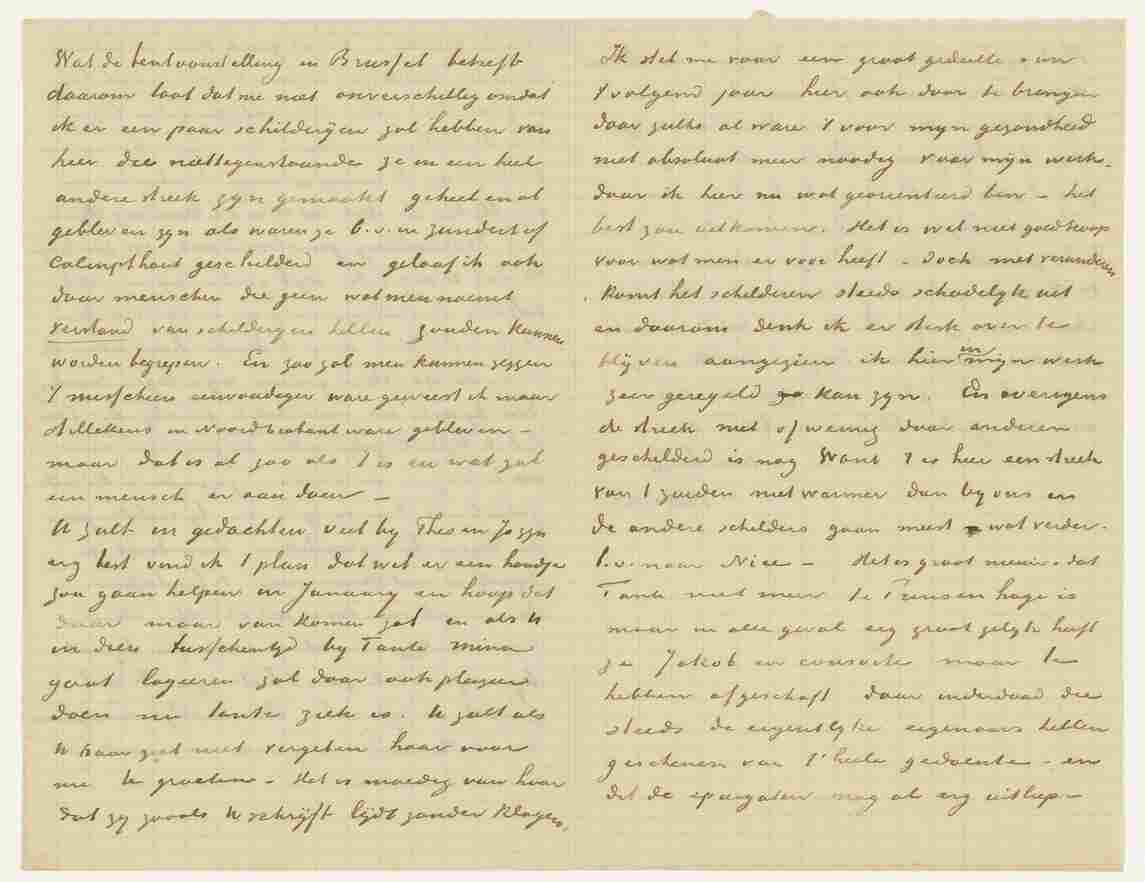 Wat de tentoonstelling in Brussel betreft
daarom laat dat me niet onverschillig omdat
ik er een paar schilderijen zal hebben van
hier die niettegenstaande ze in een heel
andere streek zyn gemaakt geheel en al
gebleven zyn als waren ze b.v. in Zundert of
Calmpthout geschilderd en geloof ik ook
door menschen die geen wat men noemt
verstand van schilderyen hebben zouden kunnen
worden begrepen. En zoo zal men kunnen zeggen
't misschien eenvoudiger ware geweest ik maar
stillekens in Noordbrabant ware gebleven –
maar dat is al zoo als 't is en wat zal
een mensch er aan doen –
U zult in gedachten veel by Theo en Jo zyn
erg best vind ik 't plan dat Wil er een handje
zou gaan helpen in January en hoop dat
daar maar van komen zal en als U
in dien tusschentyd by Tante Mina
gaat logeeren zal daar ook plezier
doen nu tante ziek is. U zult als
U haar ziet niet vergeten haar voor
me te groeten – Het is moedig van haar
dat zy zooals U schrijft lijdt zonder klagen.
Ik stel me voor een groot gedeelte van
't volgend jaar hier ook door te brengen
daar zulks al ware 't voor myn gezondheid
niet absoluut meer noodig voor mijn werk –
daar ik hier nu wat georienteerd ben – het
best zou uitkomen. Het is wel niet goedkoop
voor wat men er voor heeft – doch met veranderen
komt het schilderen steeds schadelyk uit
en daarom denk ik er sterk over te
blijven aangezien ik hier in myn werk
zeer geregeld kan zyn. En overigens
de streek niet of weinig door anderen
geschilderd is nog Want 't is hier een streek
van 't zuiden niet warmer dan by ons en
de andere schilders gaan meest wat verder.
b.v. naar Nice – Het is groot nieuws dat
Tante niet meer te Princenhage is
maar in alle geval erg groot gelyk heeft
ze Jakob en consorte maar te
hebben afgeschaft daar inderdaad die
steeds de eigentlyke eigenaars hebben
geschenen van 't heele gedoente – en
dit de spuigaten nog al erg uitliep –